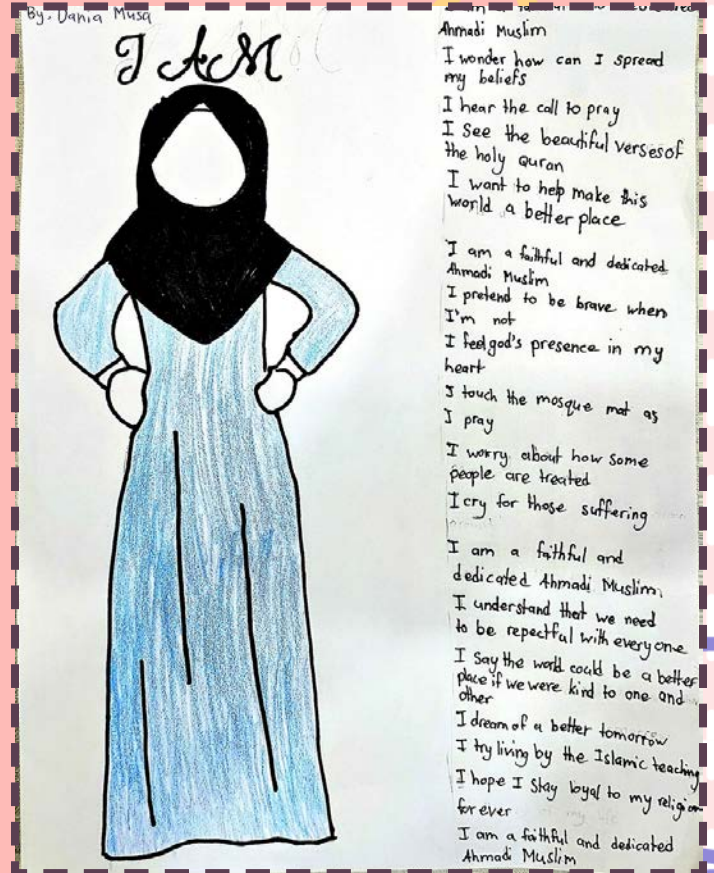 By. Dania Musa
I AM
Ahmadi Muslim
I wonder how can I spread
my beliefs
I hear the call to pray
I see the beautiful verses of
the holy quran
I want to help make this
world a better place
I am a faithful and dedicated
Ahmadi Muslim
I pretend to be brave when
I'm not
I feel god's presence in my
heart
I touch the mosque mat as
I pray
I worry about how some
people are treated
I cry for those suffering
I am a faithful and
dedicated Ahmadi Muslim
I understand that we need
to be repectful with everyone
I say the world could be a better
place if we were kind to one and
other
I dream of a better tomorrow
I try living by the Islamic teaching
I hope I stay loyal to my religion
for ever
I am a faithful and dedicated
Ahmadi Muslim